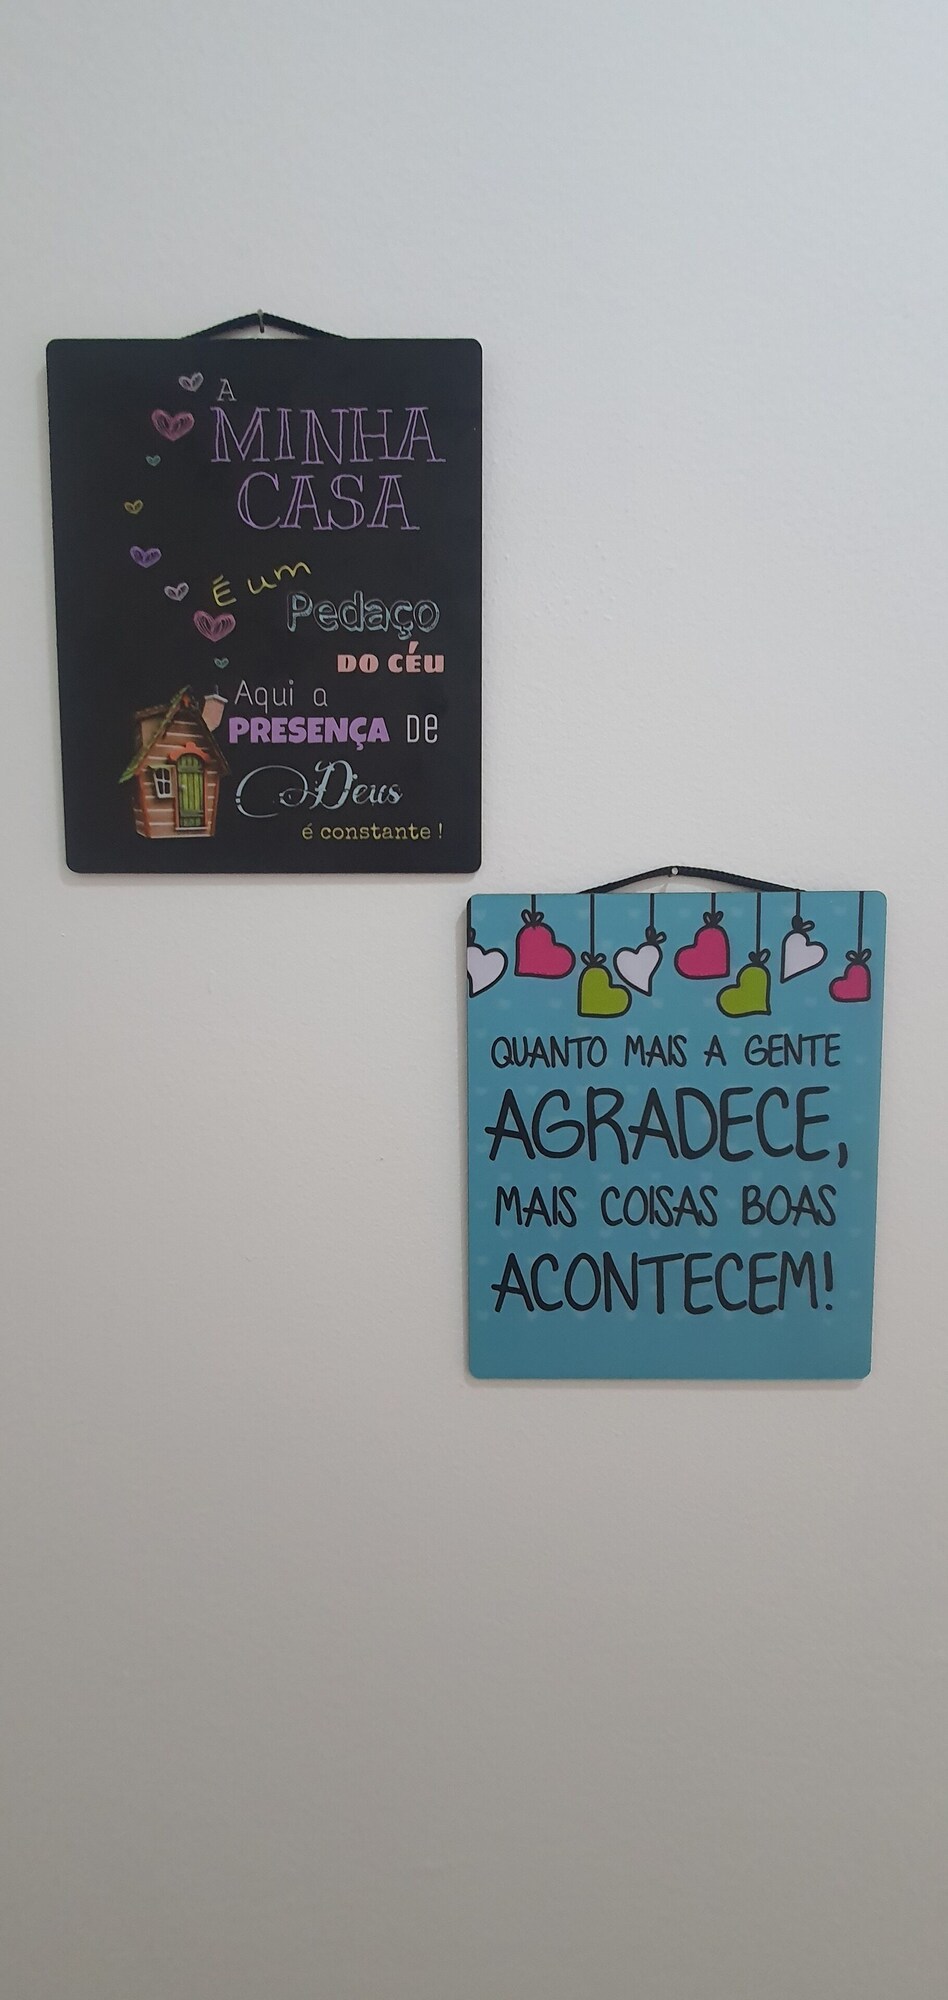 A
MINHA
CASA
É um
Pedaço
DO CÉU
Aqui a
PRESENÇA DE
Deus
é constante !
QUANTO MAIS A GENTE
AGRADECE,
MAIS COISAS BOAS
ACONTECEM!